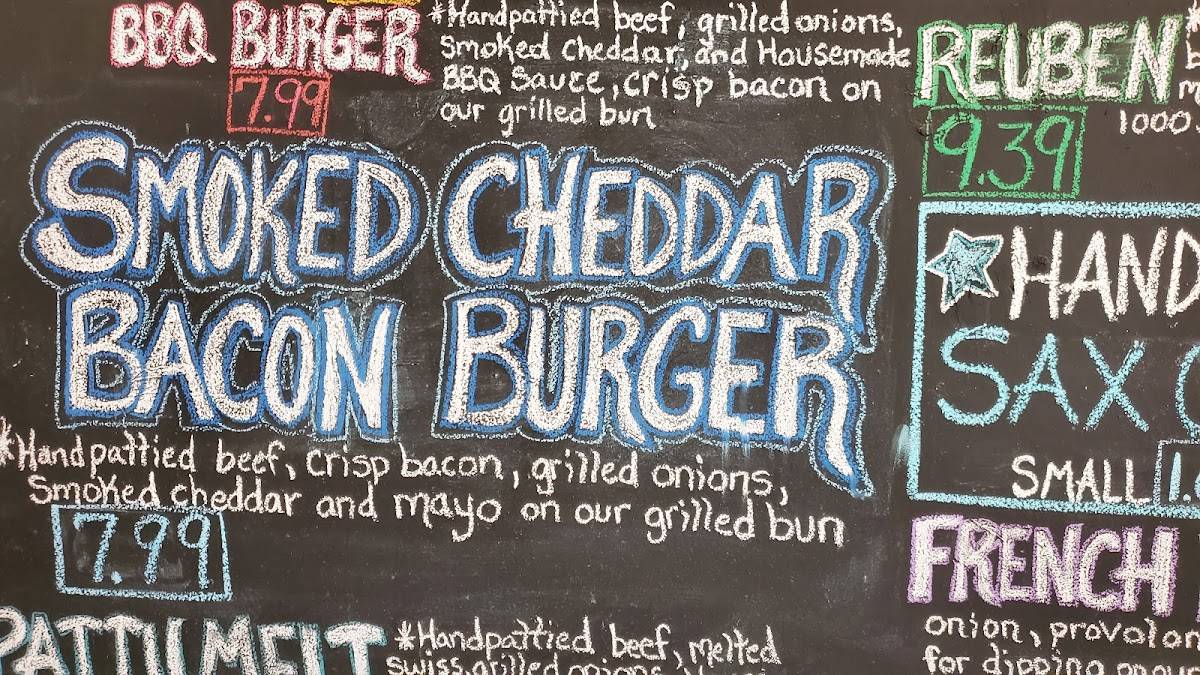 BBQ BURGER
7.99
*Handpattied beef, grilled onions,
smoked cheddar, and Housemade
BBQ Sauce, crisp bacon on
our grilled bun
SMOKED CHEDDAR
BACON BURGER
*Handpattied beef, crisp bacon, grilled onions,
Smoked cheddar and mayo on our grilled bun
7.99
PATTY MELT
*Handpattied beef, melted
swiss, grilled onions
REUBEN
9.39
1000
HAND
SAX
SMALL 1.
FRENCH
onion, provolon
for dipping